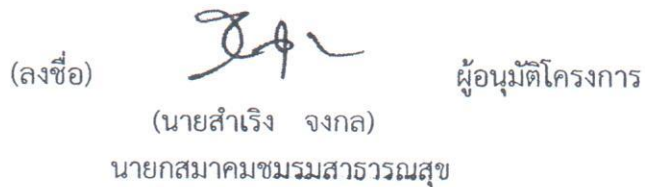 (ลงชื่อ) ผู้อนุมัติโครงการ
(นายสำเริง จงกล)
นายกสมาคมชมรมสาธารณสุข